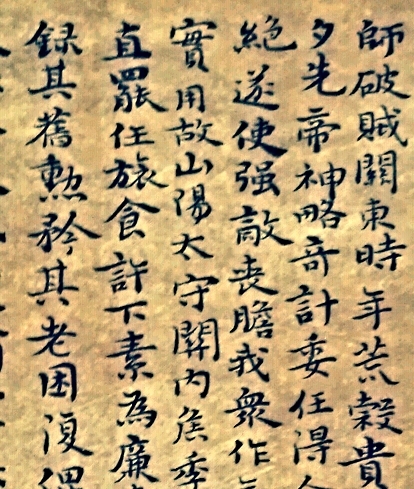 師破賊關東時年荒穀貴
夕先帝神略奇計委任得
絶遂使强敵喪膽我衆作
實用故山陽太守關內侯季
直罷任旅食許下素為廉
録其舊勲矜其老困復俾